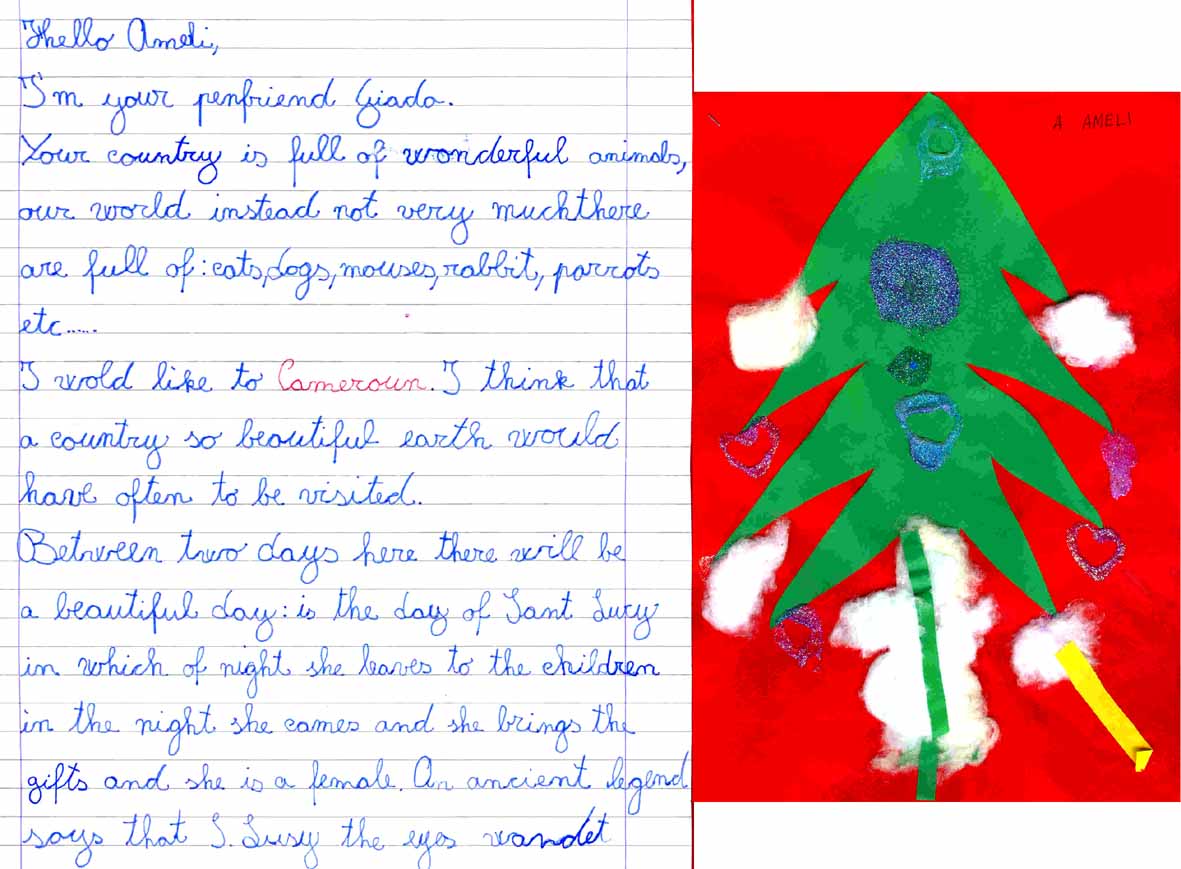 Hello Ameli,
I'm your penfriend Giada.
Your country is full of wonderful animals,
our world instead not very muchthere
are full of: cats,dogs,mouses,rabbit, parrots
etc......
I wold like to Cameroun. I think that
a country so beautiful earth would
have often to be visited.
Between two days here there will be
a beautiful day: is the day of Sant Lucy
in which of night she leaves to the children
in the night she comes and she brings the
gifts and she is a female. An ancient legend
says that S. Lusy the eyes wandet
A AMELI